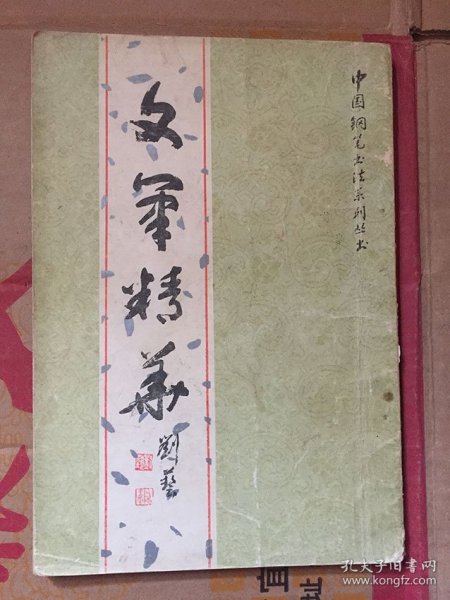 中国钢笔书法系列丛书
文军精华
刘艺
孔夫子旧书网
www.kongfz.com